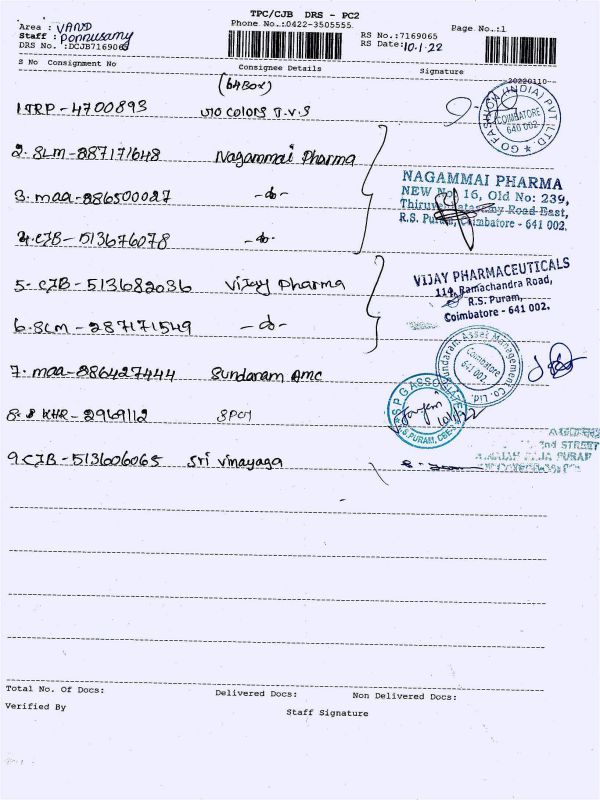 TPC/CJB DRS - PC2
Phone No.:0422-3505555
Area : VAND
Staff : Ponnusamy
DRS No. :DCJB7169065
RS No.:7169065
RS Date:10.1.22
Page No.:1
S No Consignment No Consignee Details Signature
20220110
(64Box)
1 TRP - 4700893 Colors T.V.S
GO FASHION (INDIA) PVT. LTD.
COIMBATORE
640 002
2. SLM - 287171648 Nagammai Pharma
3. maa - 286500027 -do-
4. CJB - 513676078 -do-
NAGAMMAI PHARMA
NEW No. 16, Old No: 239,
Road East,
R.S. Puram, Coimbatore - 641 002.
5. CJB - 513682036 Vijay Pharma
6. SLM - 287171549 -do-
VIJAY PHARMACEUTICALS
114, Ramachandra Road,
R.S. Puram,
Coimbatore - 641 002.
7. maa - 286427444 Sundaram Amc
Sundaram Asset Management Co. Ltd.
Coimbatore
641 002.
8. KHR - 2969112 SPCM
S P G ASSOCIATE
R.S.PURAM, CBE
10/1/22
9. CJB - 513606065 Sri Vinayaga
2nd STREET
RAJA PURAM
Total No. Of Docs: Delivered Docs: Non Delivered Docs:
Verified By Staff Signature